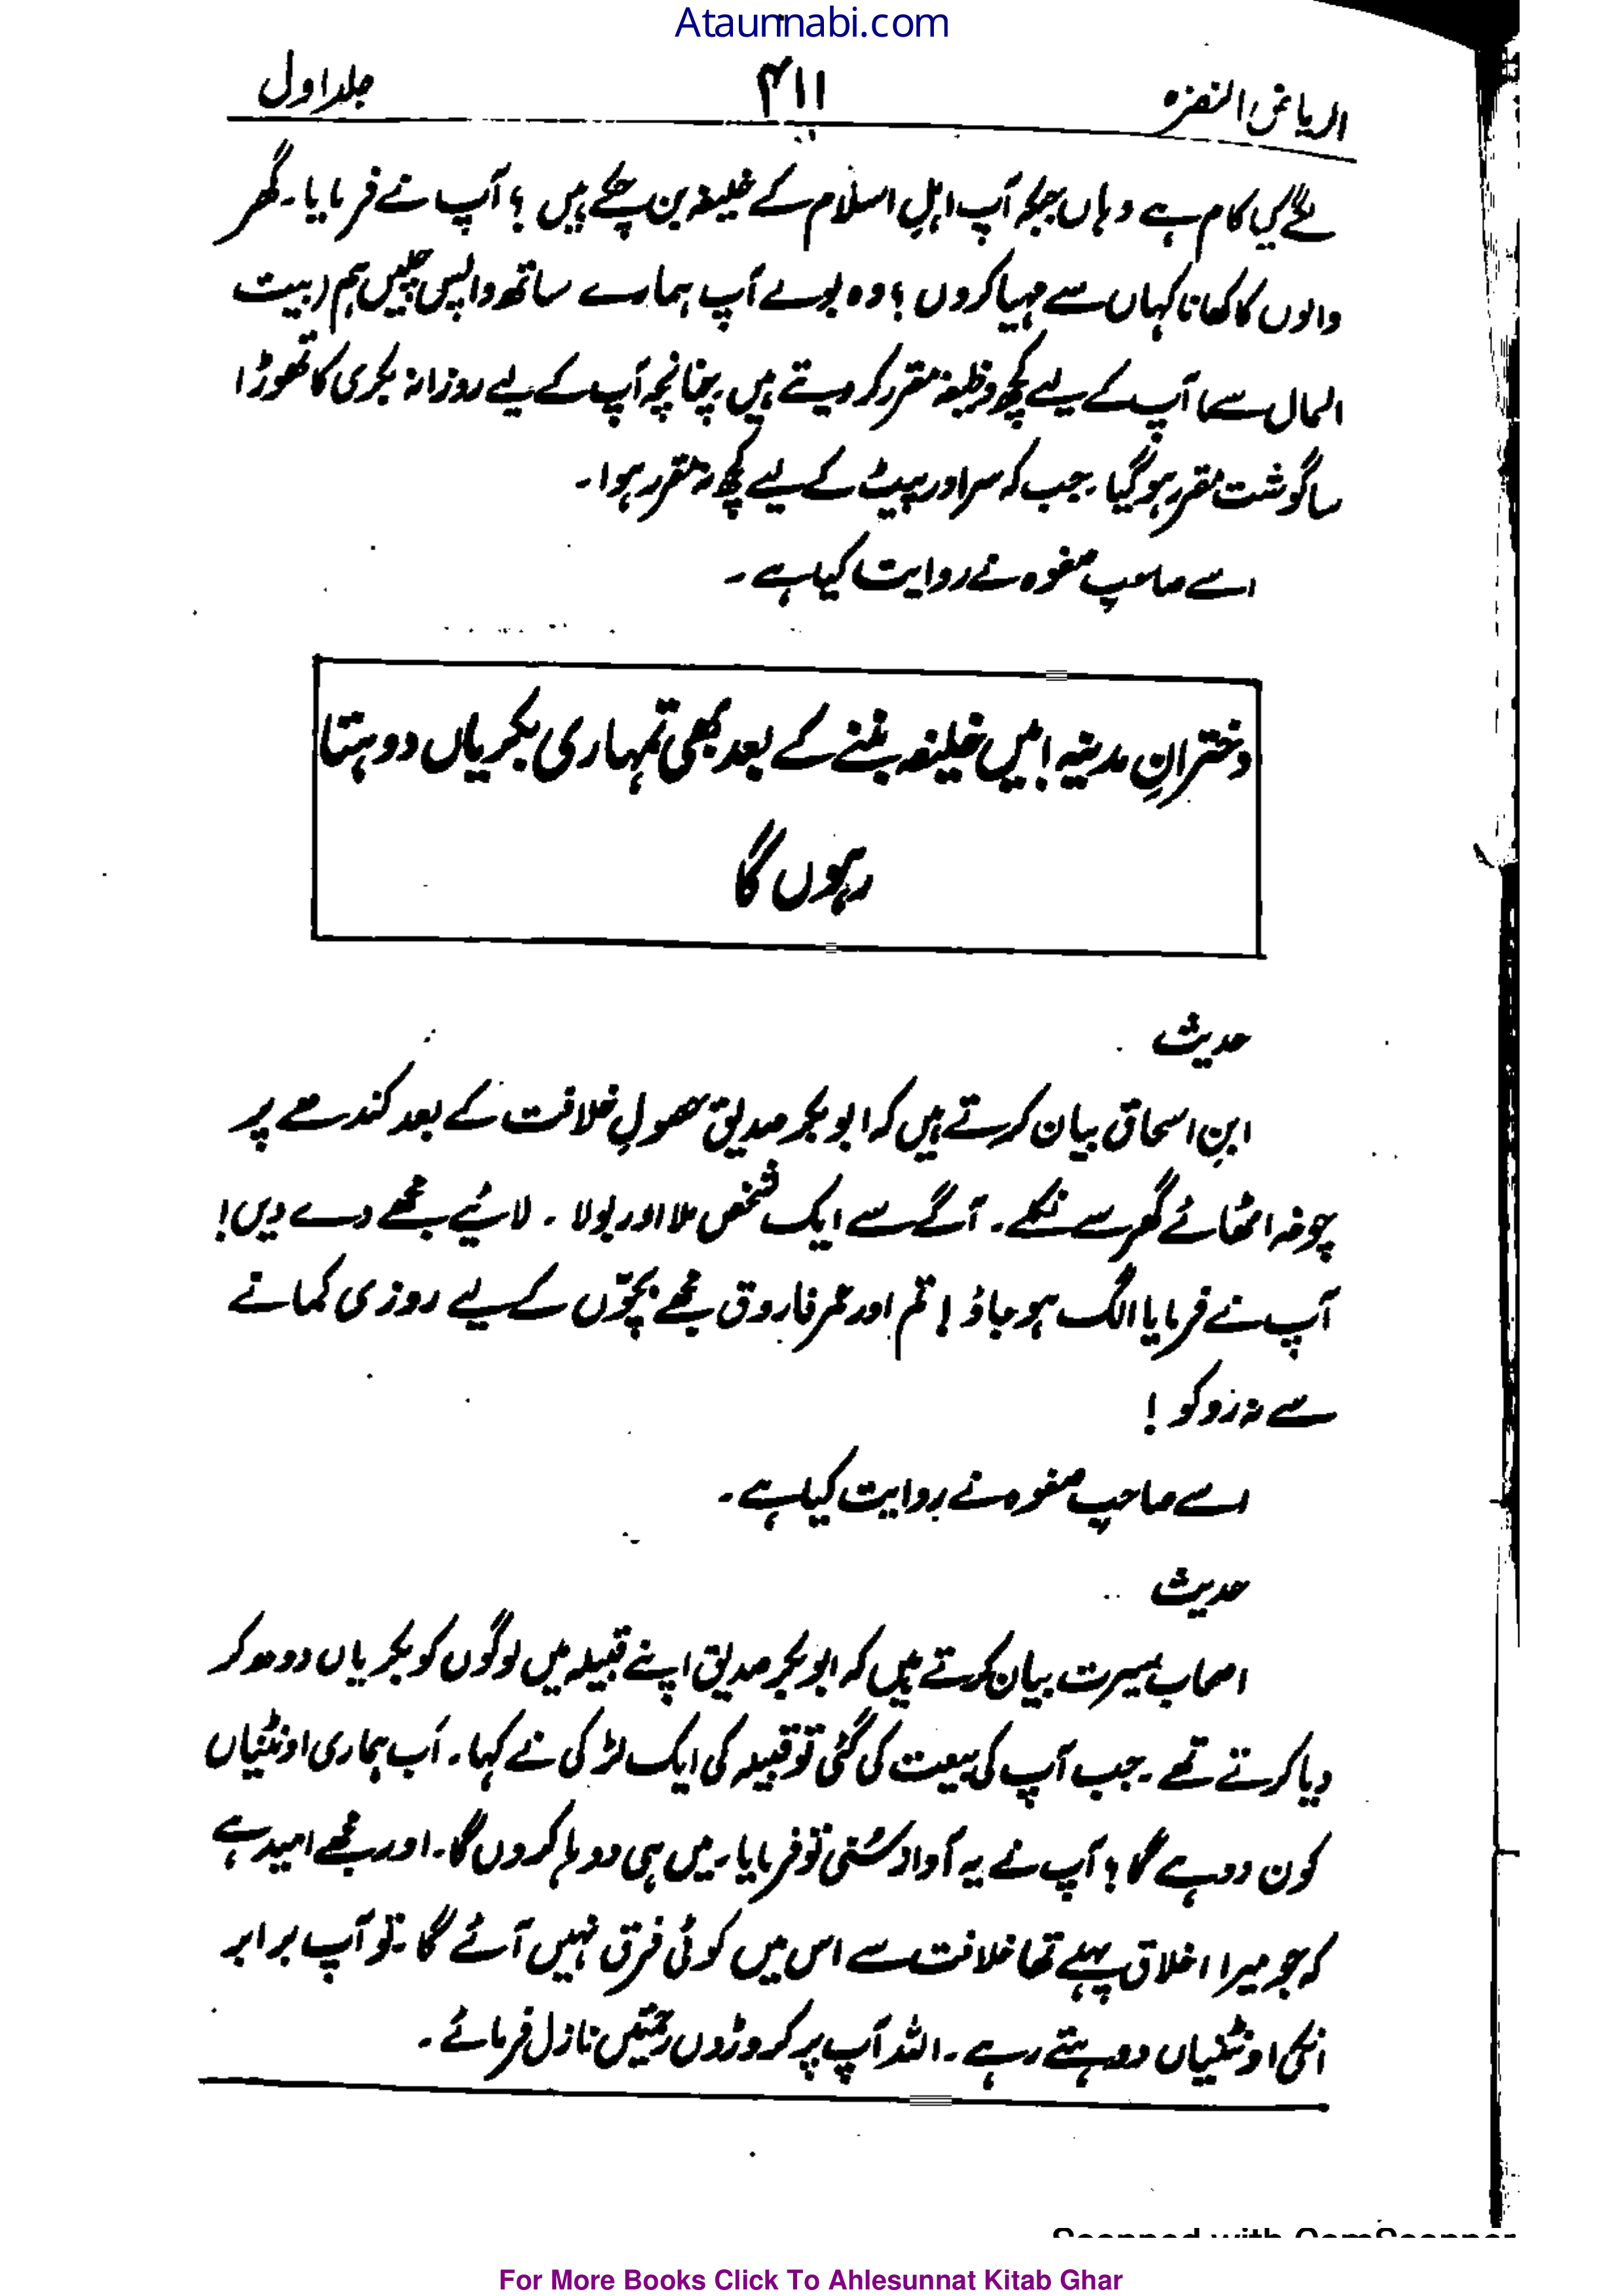 Ataunnabi.com
الریاض النضرہ ۴۱۱ جلد اول
لگے کیا کام ہے وہاں جبکہ آپ اہلِ اسلام کے خلیفہ بن چکے ہیں؟ آپ نے فرمایا۔ گھر
والوں کا کھانا کہاں سے مہیا کروں؟ وہ بولے آپ ہمارے ساتھ واپس چلیں ہم (بیت
المال سے) آپ کے لیے کچھ وظیفہ مقرر کر دیتے ہیں۔ چنانچہ آپ کے لیے روزانہ بکری کا تھوڑا
سا گوشت مقرر ہو گیا۔ جب کہ سر اور پیٹ کے لیے کچھ نہ مقرر ہوا۔
اسے صاحب صفوہ نے روایت کیا ہے۔
دخترانِ مدینہ! میں خلیفہ بننے کے بعد بھی تمہاری بکریاں دوہتا
رہوں گا
حدیث
ابنِ اسحاق بیان کرتے ہیں کہ ابوبکر صدیق حصولِ خلافت کے بعد کندھے پر
چوغہ اٹھائے گھر سے نکلے۔ آگے سے ایک شخص ملا اور بولا۔ لائیے مجھے دے دیں!
آپ نے فرمایا الگ ہو جاؤ! تم اور عمر فاروق مجھے بچّوں کے لیے روزی کمانے
سے نہ روکو!
اسے صاحبِ صفوہ نے روایت کیا ہے۔
حدیث
اصحابِ سیرت بیان کرتے ہیں کہ ابوبکر صدیق اپنے قبیلہ میں لوگوں کو بکریاں دوھ کر
دیا کرتے تھے۔ جب آپ کی بیعت کی گئی تو قبیلہ کی ایک لڑکی نے کہا۔ اَب ہماری اونٹنیاں
کون دوہے گا؟ آپ نے یہ آواز سُنی تو فرمایا۔ میں ہی دوہا کروں گا۔ اور مجھے امید ہے
کہ جو میرا اخلاق پہلے تھا خلافت سے اس میں کوئی فرق نہیں آئے گا۔ تو آپ برابر
انکی اونٹنیاں دوہتے رہے۔ اللہ آپ پر کروڑوں رحمتیں نازل فرمائے۔
Scanned with CamScanner
For More Books Click To Ahlesunnat Kitab Ghar